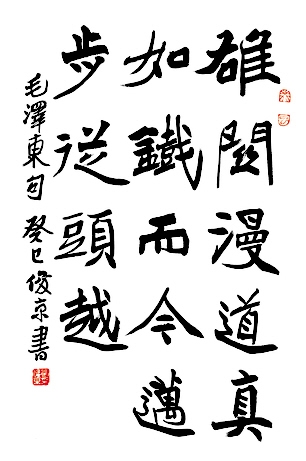 雄関漫道真
如鐵而今邁
步從頭越
毛澤東句 癸巳俊京書